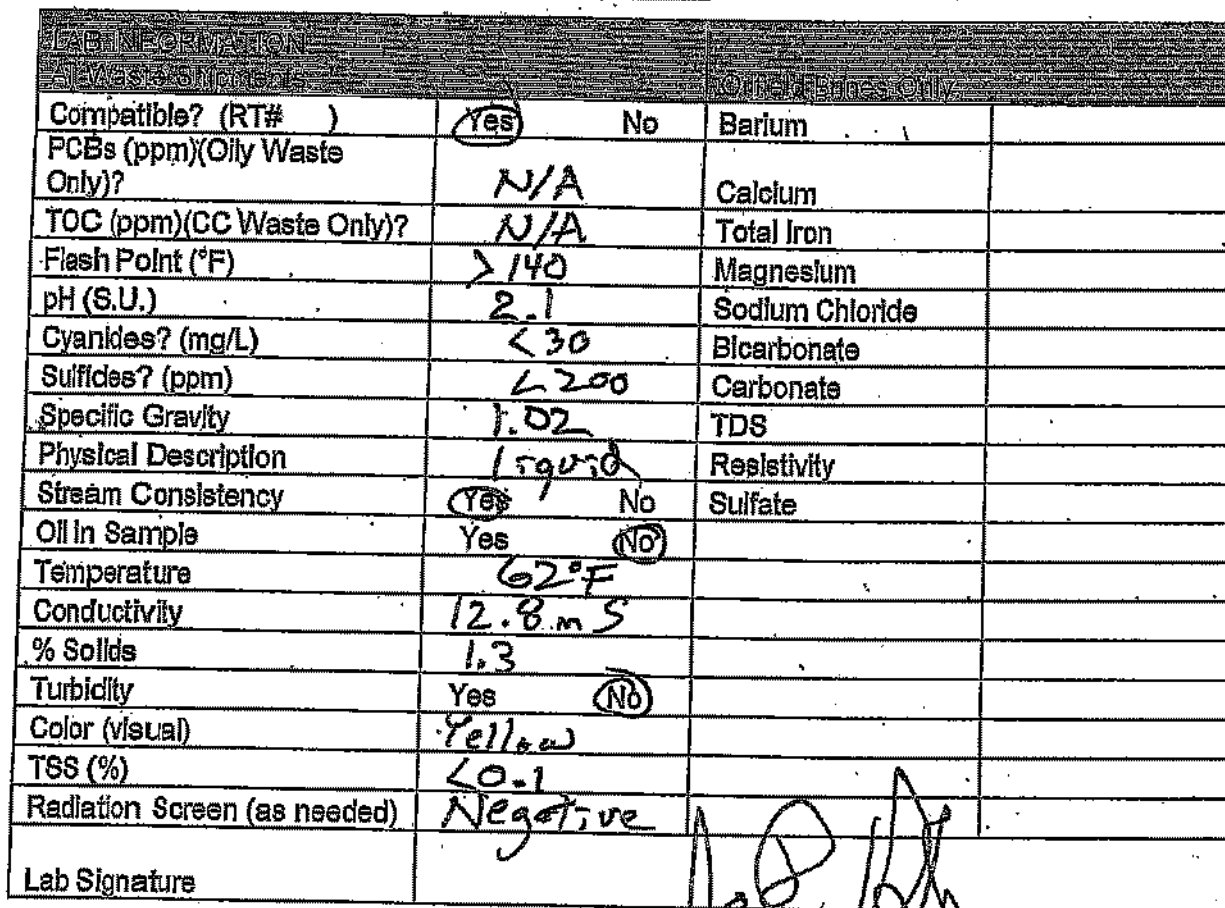 LAB INFORMATION
All Waste Shipments Oilfield Brines Only
Compatible? (RT# ) Yes No Barium
PCBs (ppm)(Oily Waste
Only)? N/A Calcium
TOC (ppm)(CC Waste Only)? N/A Total Iron
Flash Point (°F) >140 Magnesium
pH (S.U.) 2.1 Sodium Chloride
Cyanides? (mg/L) <30 Bicarbonate
Sulfides? (ppm) <200 Carbonate
Specific Gravity 1.02 TDS
Physical Description liquid Resistivity
Stream Consistency Yes No Sulfate
Oil in Sample Yes No
Temperature 62°F
Conductivity 12.8 mS
% Solids 1.3
Turbidity Yes No
Color (visual) Yellow
TSS (%) <0.1
Radiation Screen (as needed) Negative
Lab Signature